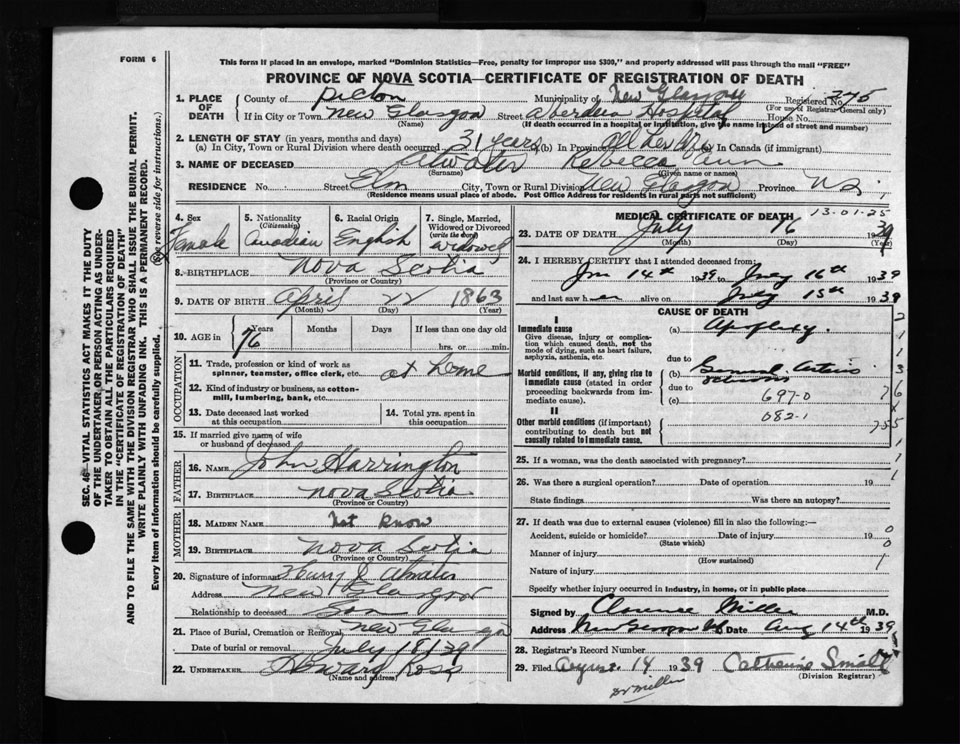 FORM 6
This form if placed in an envelope, marked "Dominion Statistics—Free, penalty for improper use $300," and properly addressed will pass through the mail "FREE"
PROVINCE OF NOVA SCOTIA—CERTIFICATE OF REGISTRATION OF DEATH
1. PLACE OF DEATH
County of Pictou Municipality of New Glasgow Registered No. 275
(For use of Registrar General only)
If in City or Town New Glasgow Street Aberdeen Hospital House No.
(Name) (If death occurred in a hospital or institution, give the name instead of street and number)
2. LENGTH OF STAY (in years, months and days)
(a) In City, Town or Rural Division where death occurred 31 years (b) In Province All her life (c) In Canada (if immigrant)
3. NAME OF DECEASED Atwater Rebecca Ann
(Surname) (Given name or names)
RESIDENCE No. Street Elm City, Town or Rural Division New Glasgow Province N.S.
(Residence means usual place of abode. Post Office Address for residents in rural parts not sufficient)
4. Sex Female
5. Nationality (Citizenship) Canadian
6. Racial Origin English
7. Single, Married, Widowed or Divorced (write the word) Widowed
8. BIRTHPLACE Nova Scotia
(Province or Country)
9. DATE OF BIRTH April 22 1863
(Month) (Day) (Year)
10. AGE in 76 Years Months Days If less than one day old
hrs. or min.
OCCUPATION
11. Trade, profession or kind of work as spinner, teamster, office clerk, etc. at home
12. Kind of industry or business, as cotton-mill, lumbering, bank, etc.
13. Date deceased last worked at this occupation
14. Total yrs. spent in this occupation
15. If married give name of wife or husband of deceased
FATHER
16. NAME John Harrington
17. BIRTHPLACE Nova Scotia
(Province or Country)
MOTHER
18. MAIDEN NAME Not know
19. BIRTHPLACE Nova Scotia
(Province or Country)
20. Signature of informant Harry J Atwater
Address New Glasgow
Relationship to deceased Son
21. Place of Burial, Cremation or Removal New Glasgow
Date of burial or removal July 18 1939
22. UNDERTAKER Howard Ross
(Name and address)
MEDICAL CERTIFICATE OF DEATH
13-01-25
23. DATE OF DEATH July 16 1939
(Month) (Day) (Year)
24. I HEREBY CERTIFY that I attended deceased from:
Jan 14th 1939 to July 16th 1939
and last saw her alive on July 15th 1939
CAUSE OF DEATH
I
Immediate cause
Give disease, injury or complication which caused death, not the mode of dying, such as heart failure, asphyxia, asthenia, etc.
(a) Apoplexy.
due to
Morbid conditions, if any, giving rise to immediate cause (stated in order proceeding backwards from immediate cause).
General Arterio
due to
697-0
(c)
II
082-1
Other morbid conditions (if important) contributing to death but not causally related to immediate cause.
25. If a woman, was the death associated with pregnancy?
26. Was there a surgical operation? Date of operation 19
State findings Was there an autopsy?
27. If death was due to external causes (violence) fill in also the following:—
Accident, suicide or homicide? Date of injury 19
(State which)
Manner of injury
(How sustained)
Nature of injury
Specify whether injury occurred in industry, in home, or in public place
Signed by Clarence Miller M.D.
Address New Glasgow NS Date Aug 14th 1939
28. Registrar's Record Number
29. Filed August 14 1939 Catherine Small
(Division Registrar)
Dr Miller
SEC. 46—VITAL STATISTICS ACT MAKES IT THE DUTY OF THE UNDERTAKER, OR PERSON ACTING AS UNDERTAKER TO OBTAIN ALL THE PARTICULARS REQUIRED IN THE "CERTIFICATE OF REGISTRATION OF DEATH"
AND TO FILE THE SAME WITH THE DIVISION REGISTRAR WHO SHALL ISSUE THE BURIAL PERMIT.
WRITE PLAINLY WITH UNFADING INK. THIS IS A PERMANENT RECORD.
Every item of information should be carefully supplied. (See reverse side for instructions.)